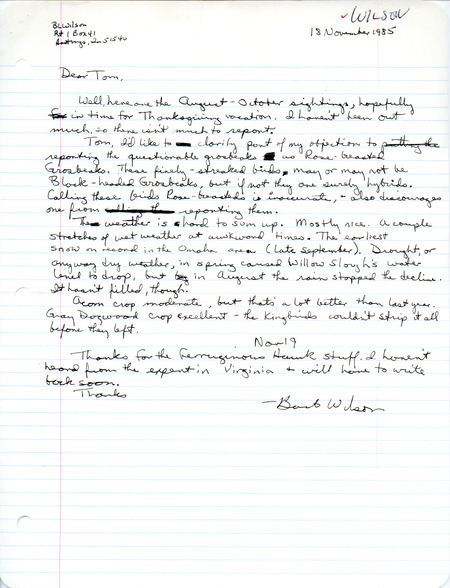 ✓ WILSON
BLWilson
Rt 1 Box 41
Hastings, Ia 51540
18 November 1985
Dear Tom,
Well, here are the August-October sightings, hopefully
in time for Thanksgiving vacation. I haven't been out
much, so there isn't much to report.
Tom, I'd like to clarify part of my objection to
reporting the questionable grosbeaks as Rose-breasted
Grosbeaks. These finely-streaked birds may or may not be
Black-headed Grosbeaks, but if not they are surely hybids.
Calling these birds Rose-breasteds is inaccurate, + also discourages
one from reporting them.
The weather is hard to sum up. Mostly nice. A couple
stretches of wet weather at awkward times. The earliest
snow on record in the Omaha area (late September). Drought, or
anyway dry weather, in spring caused Willow Slough's water
level to drop, but in August the rain stopped the decline.
It hasn't filled, though.
Acorn crop moderate, but that's a lot better than last year.
Gray Dogwood crop excellent - the Kingbirds couldn't strip it all
before they left.
Nov 19
Thanks for the Ferruginous Hawk stuff. I haven't
heard from the expert in Virginia + will have to write
back soon.
Thanks
—Barb Wilson